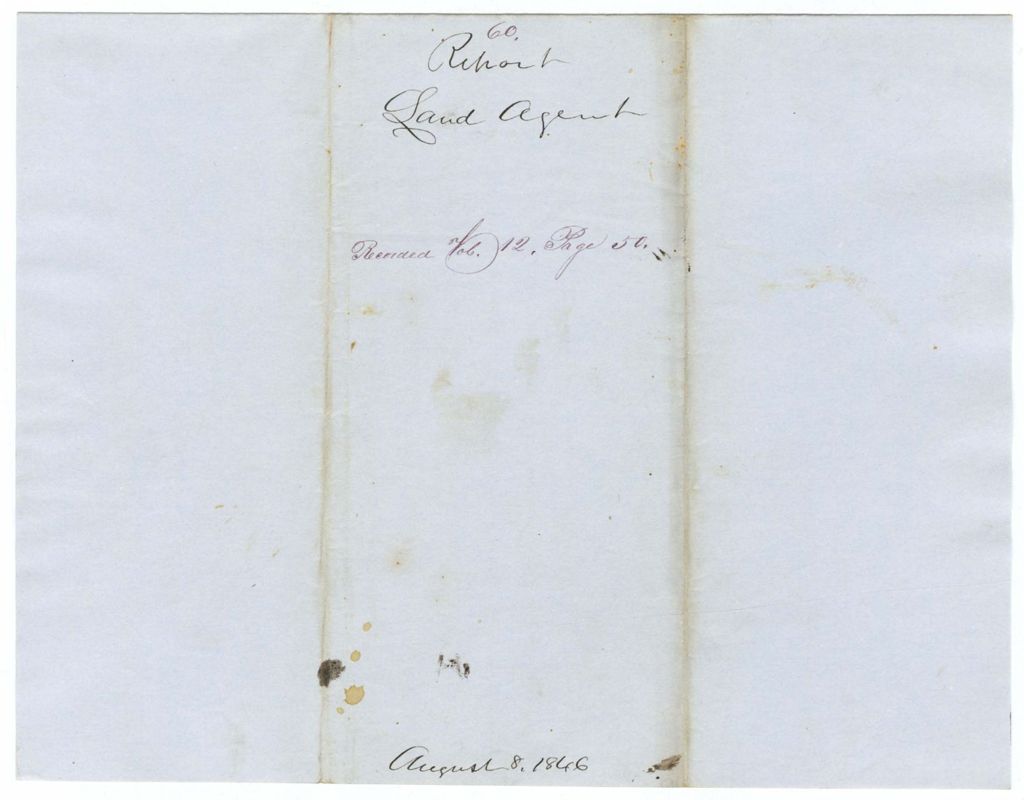 60.
Report
Land Agent
Recorded Vol. 12, Page 50.
August 8. 1846